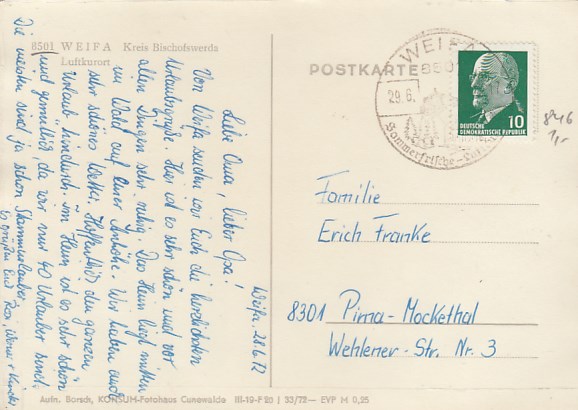 8501 WEIFA Kreis Bischofswerda
Luftkurort
Weifa, 28.6.72
Liebe Oma, lieber Opa!
Von Weifa senden wir Euch die herzlichsten
Urlaubsgrüße. Hier ist es sehr schön und vor
allen Dingen sehr ruhig. Das Heim liegt mitten
im Wald auf einer Anhöhe. Wir haben auch
sehr schönes Wetter. Hoffentlich den ganzen
Urlaub hindurch. Im Heim ist es sehr schön
und gemütlich, da wir nur 40 Urlauber sind.
Die meisten sind ja schon Stammurlauber.
Es grüßen Euch
POSTKARTE
WEIFA
8501
29.6.
Sommerfrische
10
DEUTSCHE
DEMOKRATISCHE REPUBLIK
846
1,-
Familie
Erich Franke
8301 Pirna-Mockethal
Wehlener-Str. Nr. 3
Aufn. Borsch, KONSUM-Fotohaus Cunewalde III-19-F 20 | 33/72— EVP M 0,25